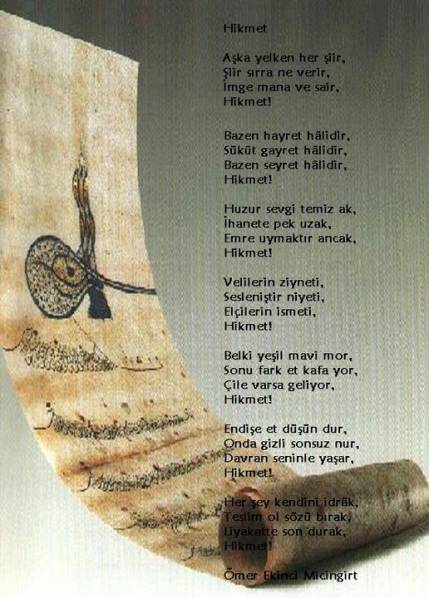 Hikmet
Aşka yelken her şiir,
Şiir sırra ne verir,
İmge mana ve sair,
Hikmet!
Bazen hayret hâlidir,
Sükût gayret hâlidir,
Bazen seyret hâlidir,
Hikmet!
Huzur sevgi temiz ak,
İhanete pek uzak,
Emre uymaktır ancak,
Hikmet!
Velilerin ziyneti,
Sesleniştir niyeti,
Elçilerin ismeti,
Hikmet!
Belki yeşil mavi mor,
Sonu fark et kafa yor,
Çile varsa geliyor,
Hikmet!
Endişe et düşün dur,
Onda gizli sonsuz nur,
Davran seninle yaşar,
Hikmet!
Her şey kendini idrâk,
Teslim ol sözü bırak,
Liyakatte son durak,
Hikmet!
Ömer Ekinci Micingirt